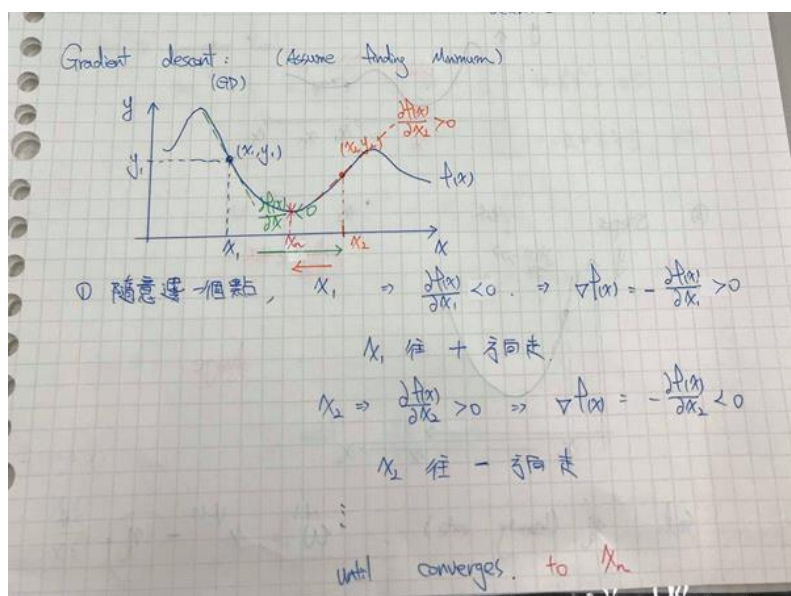 Gradient descant : (Assume finding Minimum)
(GD)
y
∂f(x)/∂x₂ > 0
y₁
(x₁,y₁)
(x₂,y₂)
f(x)
∂f(x)/∂x < 0
x₁ xₙ x₂ x
① 隨意選一個點, x₁ ⇒ ∂f(x)/∂x₁ < 0. ⇒ ∇f(x) = - ∂f(x)/∂x₁ > 0
x₁ 往 + 方向走.
x₂ ⇒ ∂f(x)/∂x₂ > 0 ⇒ ∇f(x) = - ∂f(x)/∂x₂ < 0
x₂ 往 - 方向走
⋮
until converges. to xₙ